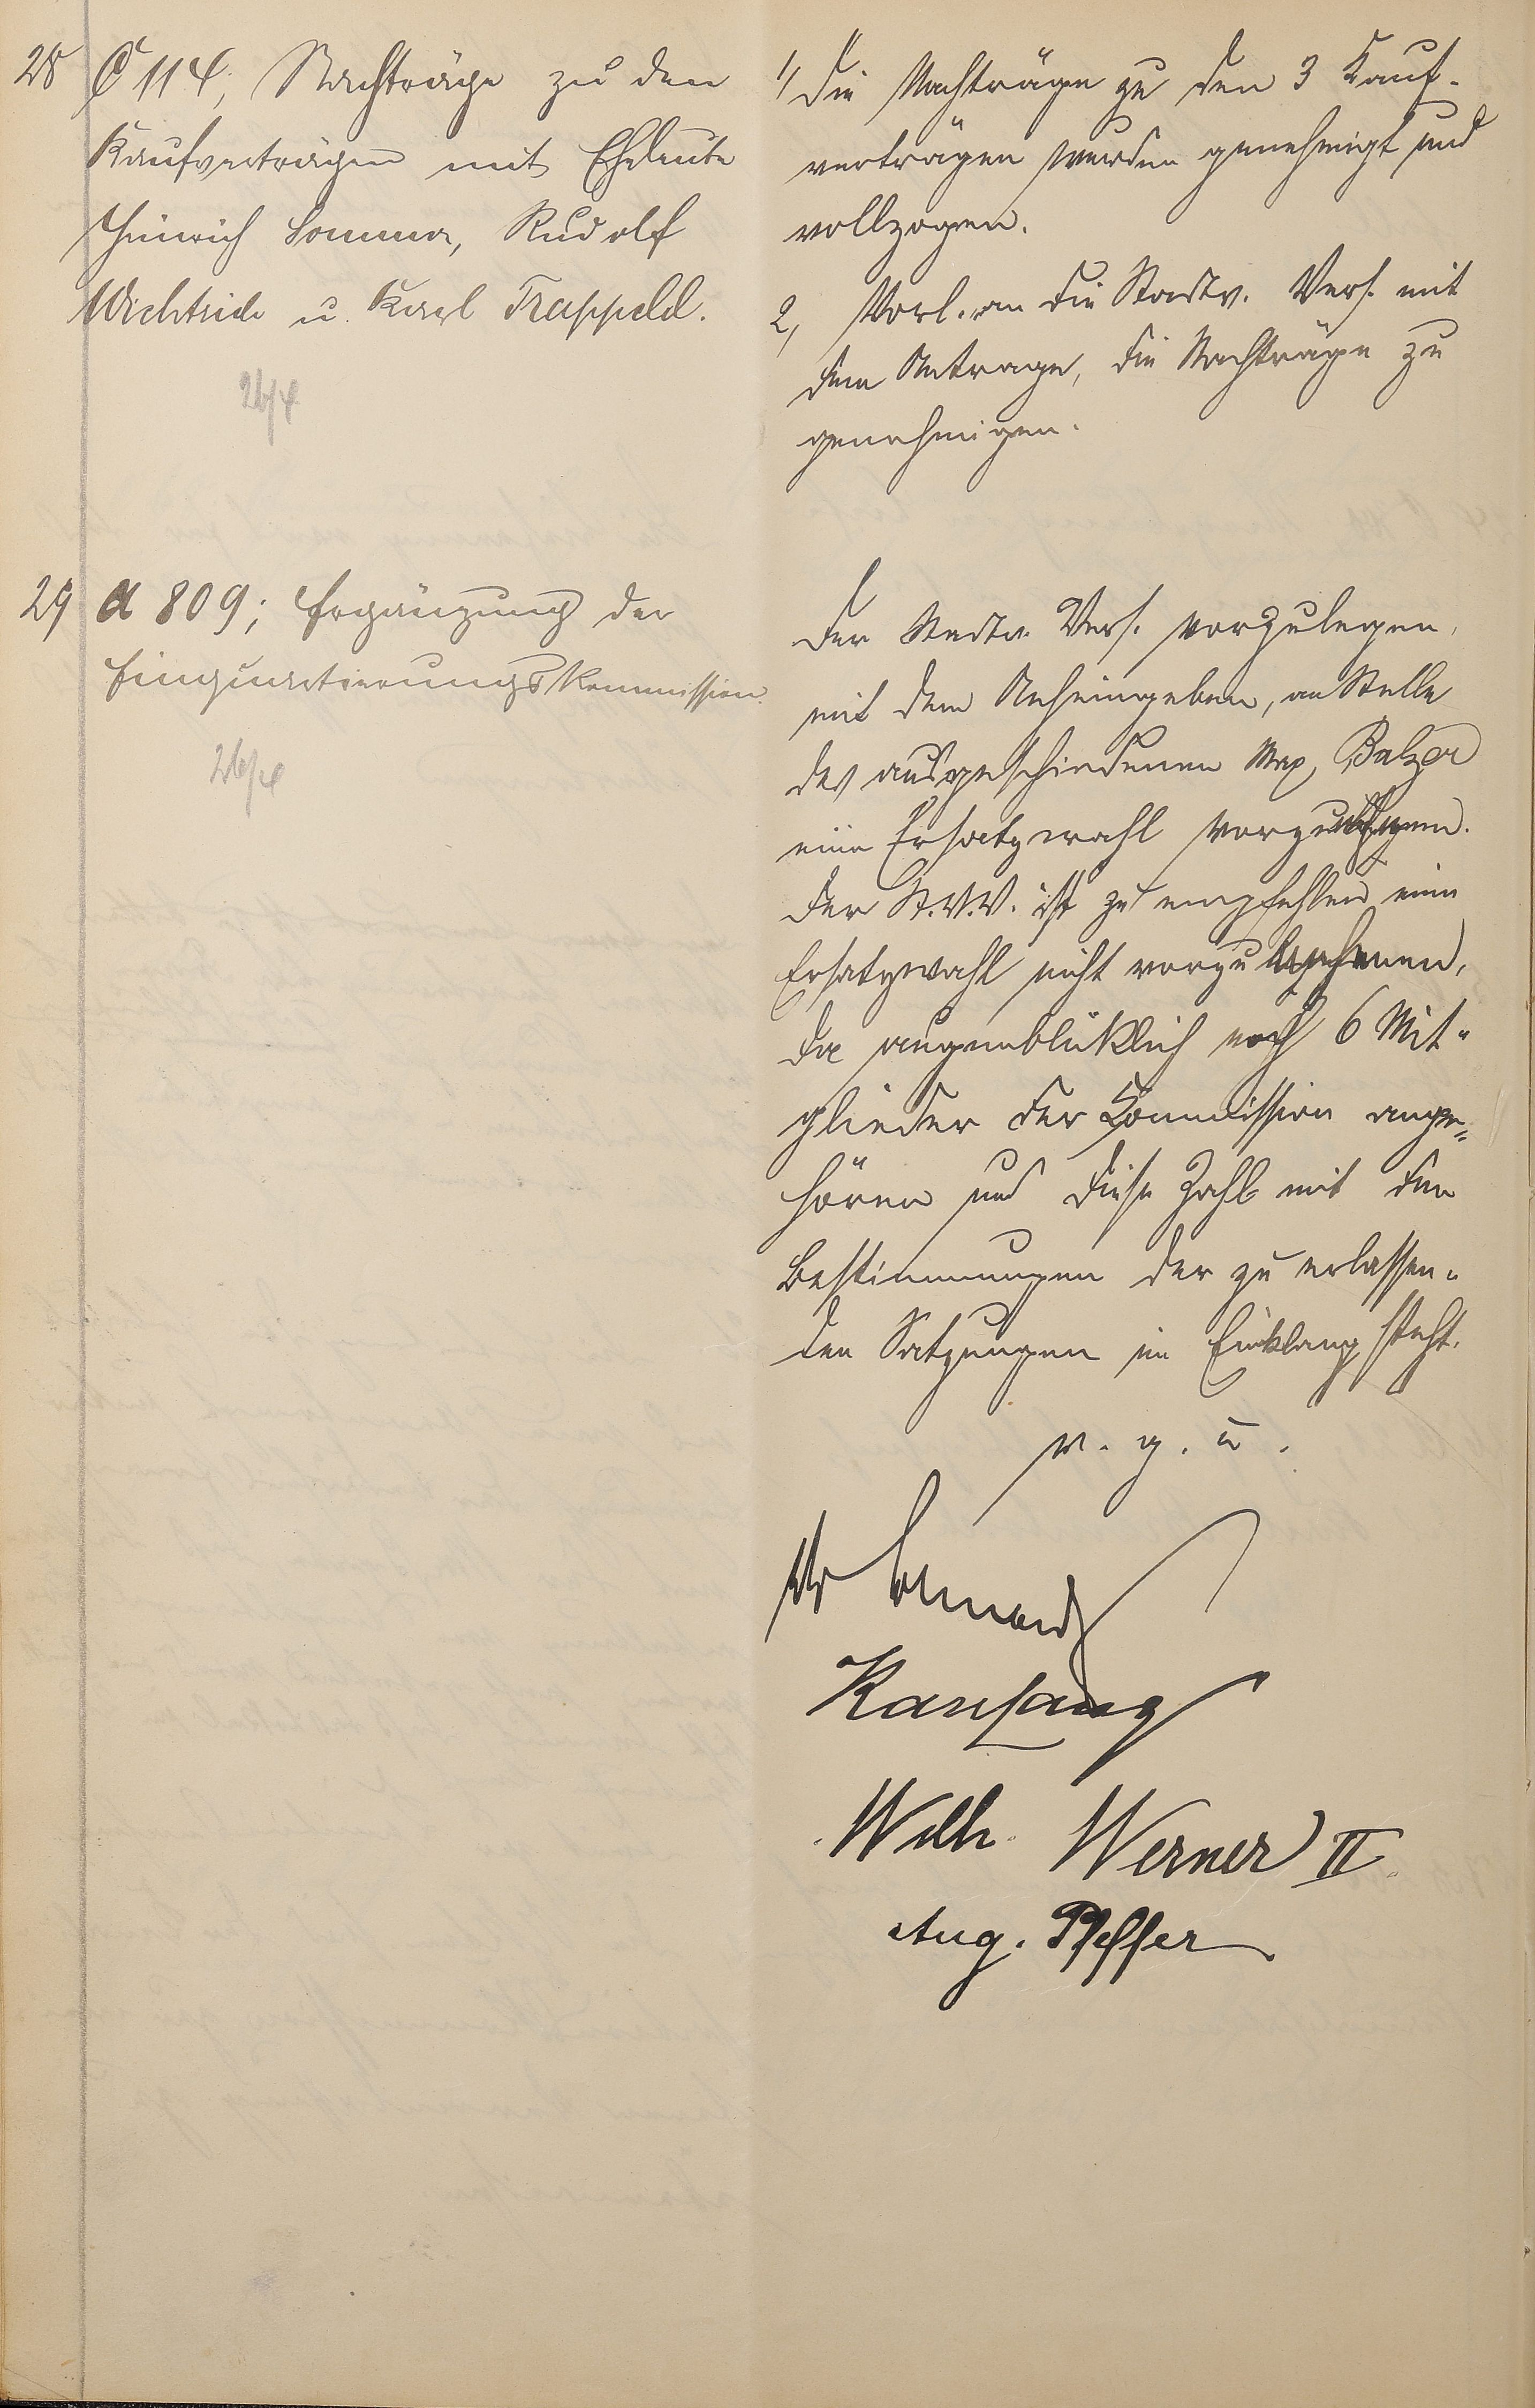 28 C 114; Nachträge zu den
Kaufverträgen mit Eheleute
Heinrich Sommer, Rudolf
Wichtrich u. Karl Trappeld.
26/4
1, Die Nachträge zu den 3 Kauf-
verträgen werden genehmigt und
vollzogen.
2, Vorl. an die Stadtv. Vers. mit
dem Antrage, die Nachträge zu
genehmigen.
29 A 809; Ergänzung der
Einquartierungskommission
26/4
Der Stadtv. Vers. vorzulegen,
mit dem Anheimgeben, an Stelle
des ausgeschiedenen Max Balzer
eine Ersatzwahl
Der St.V.V. ist zu empfehlen eine
Ersatzwahl nicht
da augenblicklich noch 6 Mit-
glieder der Kommission ange-
hören und diese Zahl mit den
Bestimmungen der zu erlassen-
den Satzungen im Einklang steht.
v. g. u.
Wilh. Werner II.
Aug. Pfeffer